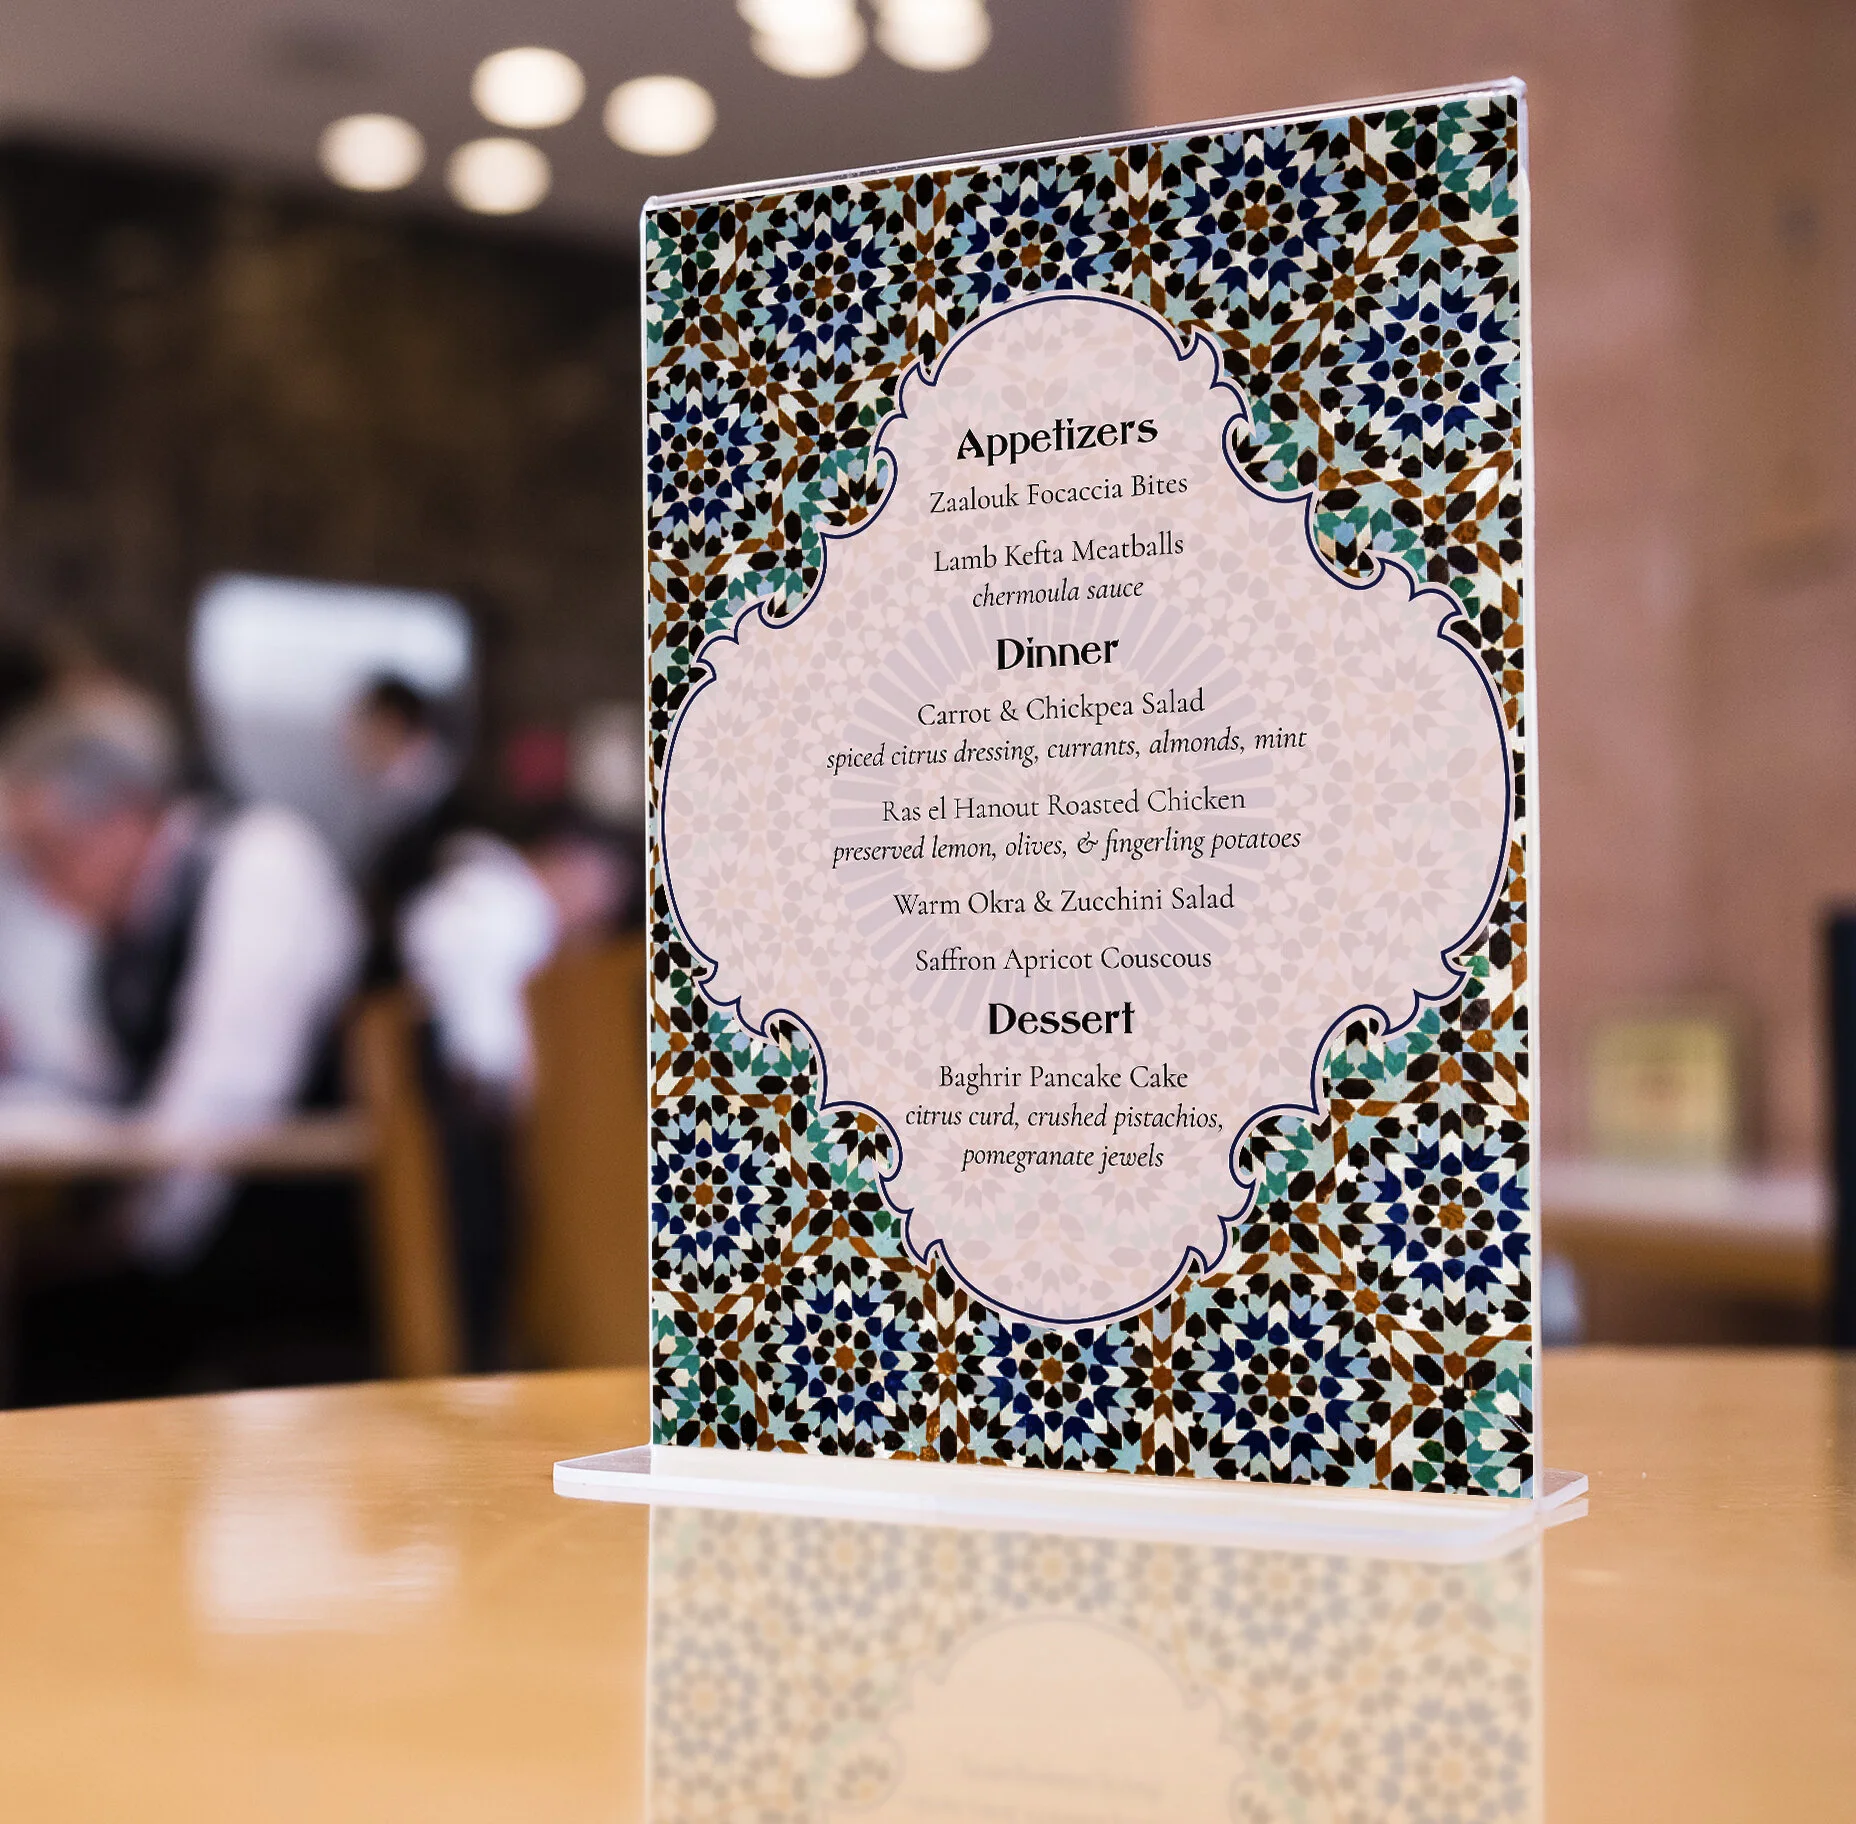 Appetizers
Zaalouk Focaccia Bites
Lamb Kefta Meatballs
chermoula sauce
Dinner
Carrot & Chickpea Salad
spiced citrus dressing, currants, almonds, mint
Ras el Hanout Roasted Chicken
preserved lemon, olives, & fingerling potatoes
Warm Okra & Zucchini Salad
Saffron Apricot Couscous
Dessert
Baghrir Pancake Cake
citrus curd, crushed pistachios,
pomegranate jewels